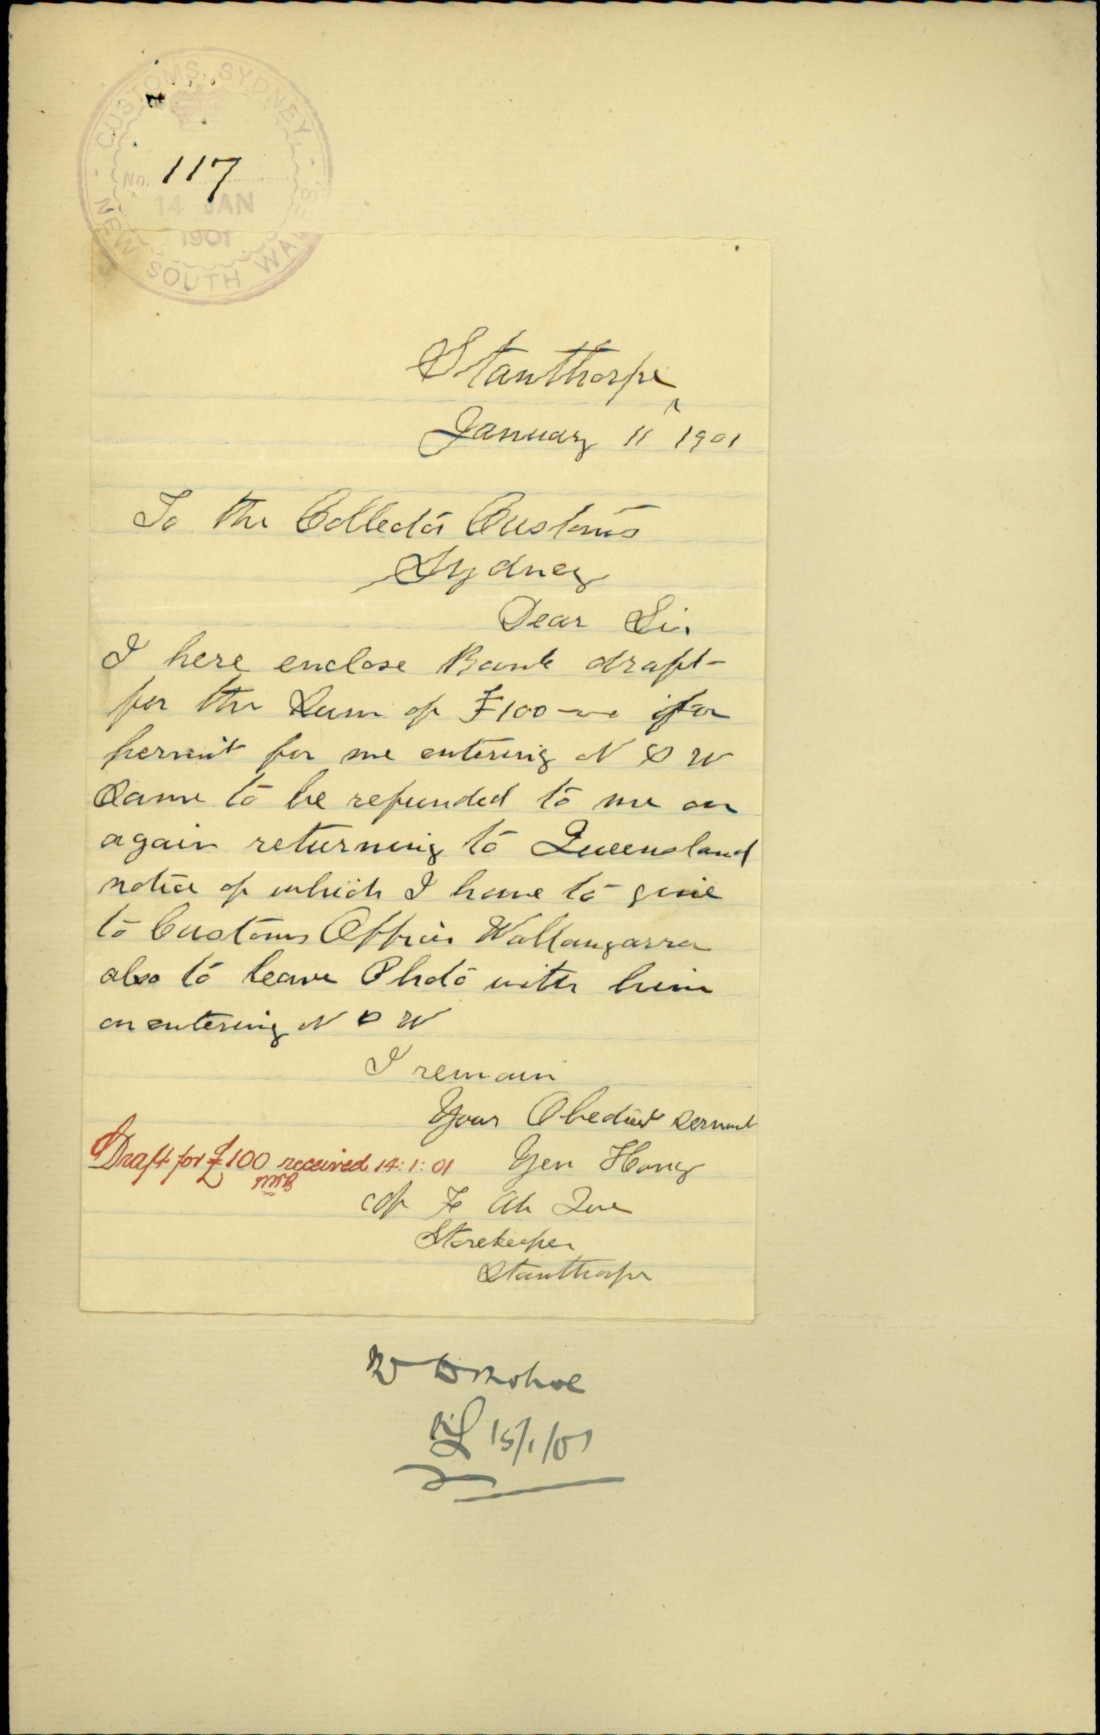 CUSTOMS, SYDNEY,
NEW SOUTH WALES
No. 117
14 JAN
1901
Stanthorpe
January 11 1901
To the Collector Customs
Sydney
Dear Sir
I here enclose Bank draft
for the Sum of £100 for
permit for me entering N S W
Same to be refunded to me on
again returning to Queensland
notice of which I have to give
to Customs Officer Wallangarra
also to leave Photo with him
on entering N S W
I remain
Your Obedient servant
Yen Hong
Draft for £100 received 14:1:01
c/o Ah
Storekeeper
Stanthorpe
Donohoe
15/1/01